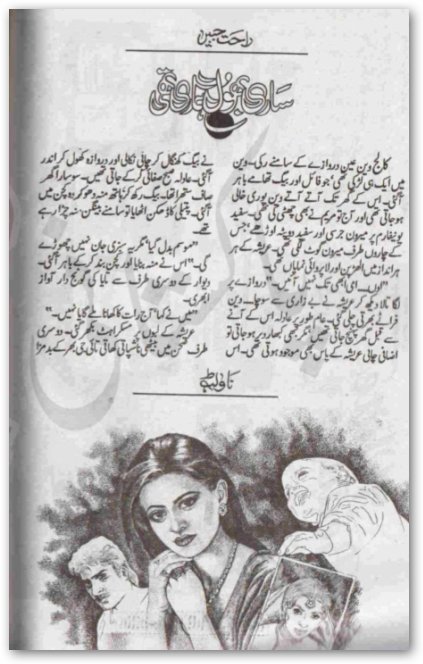 راحت جبین
ساری بھول ہماری تھی
کالج وین عین دروازے کے سامنے رکی۔ وین
میں ایک ہی لڑکی تھی‘ جو فائل اور بیگ تھامے باہر
آگئی۔ اس کے گھر تک آتے آتے وین پوری خالی
ہو جاتی تھی اور آج تو مریم نے بھی چھٹی کی تھی۔ سفید
یونیفارم پر میرون جرسی اور سفید دوپٹہ اوڑھے‘ جس
کے چاروں طرف میرون گوٹ لگی تھی۔ عریشہ کے ہر
ہر انداز میں الھڑپن اور لاپروائی نمایاں تھی۔
”اوں... امی ابھی تک نہیں آئیں۔“ دروازے پر
لگا تالا دیکھ کر عریشہ نے بے زاری سے سوچا۔ وین
فراٹے بھرتی چلی گئی۔ عام طور پر عادلہ اس کے آنے
سے قبل گھر پہنچ جاتی تھیں‘ مگر کبھی کبھار دیر ہو جاتی تو
اضافی چابی عریشہ کے پاس بھی موجود ہوتی تھی۔ اس
نے بیگ کھنگال کر چابی نکالی اور دروازہ کھول کر اندر
آگئی۔ عادلہ صبح صفائی کر کے جاتی تھیں۔ سو سارا گھر
صاف ستھرا تھا۔ بیگ رکھ کر ہاتھ منہ دھو کر وہ کچن میں
آگئی۔ پتیلی کا ڈھکن اٹھایا تو سامنے بینگن منہ چڑا رہے
تھے
”موسم بدل گیا‘ مگر یہ سبزی جان نہیں چھوڑے
گی۔“ اس نے منہ بنایا اور کچن بند کر کے باہر آگئی۔
دیوار کے دوسری طرف سے تایا کی گونج دار آواز
ابھری۔
”میں نے کہا‘ آج رات کا کھانا ملے گا یا نہیں۔“
عریشہ کے لبوں پر مسکراہٹ بکھر گئی۔ دوسری
طرف صحن میں بیٹھی ناشپاتی کھاتی تائی جی بھر کے بدمزا
ناولٹ